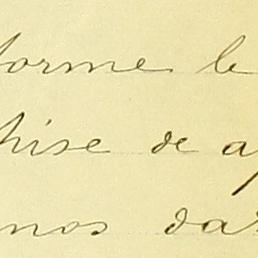 forme le
hise de a
nos da